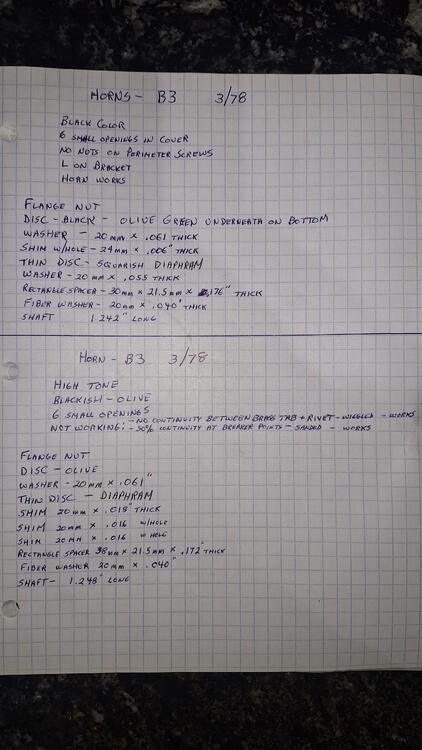 HORNS - B3 3/78
BLACK COLOR
6 SMALL OPENINGS IN COVER
NO NUTS ON PERIMETER SCREWS
L ON BRACKET
HORN WORKS
FLANGE NUT
DISC - BLACK - OLIVE GREEN UNDERNEATH ON BOTTOM
WASHER - 20mm x .061 THICK
SHIM W/HOLE - 24mm x .006" THICK
THIN DISC - SQUARISH DIAPHRAM
WASHER - 20mm x .055 THICK
RECTANGLE SPACER - 30mm x 21.5mm x .176" THICK
FIBER WASHER - 20mm x .040" THICK
SHAFT 1.242" LONG
HORN - B3 3/78
HIGH TONE
BLACKISH - OLIVE
6 SMALL OPENINGS
NOT WORKING: - NO CONTINUITY BETWEEN BRASS TAB + RIVET - WIGGLED - WORKS
- 50% CONTINUITY AT BREAKER POINTS - SANDED - WORKS
FLANGE NUT
DISC - OLIVE
WASHER - 20mm x .061"
THIN DISC - DIAPHRAM
SHIM 20mm x .018" THICK
SHIM 20mm x .016 W/HOLE
SHIM 20mm x .016 W HOLE
RECTANGLE SPACER 38mm x 21.5mm x .172" THICK
FIBER WASHER 20mm x .040"
SHAFT - 1.248" LONG